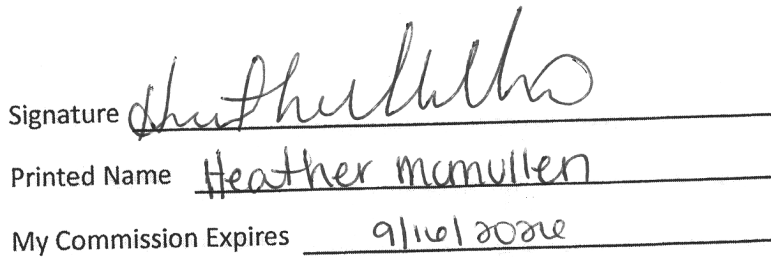 Signature
Printed Name Heather mcmullen
My Commission Expires 9/16/2026